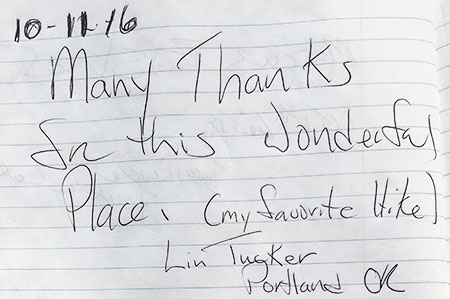 10-11-16
Many Thanks
for this Wonderful
Place. (my favorite Hike)
Lin Tucker
Portland OR